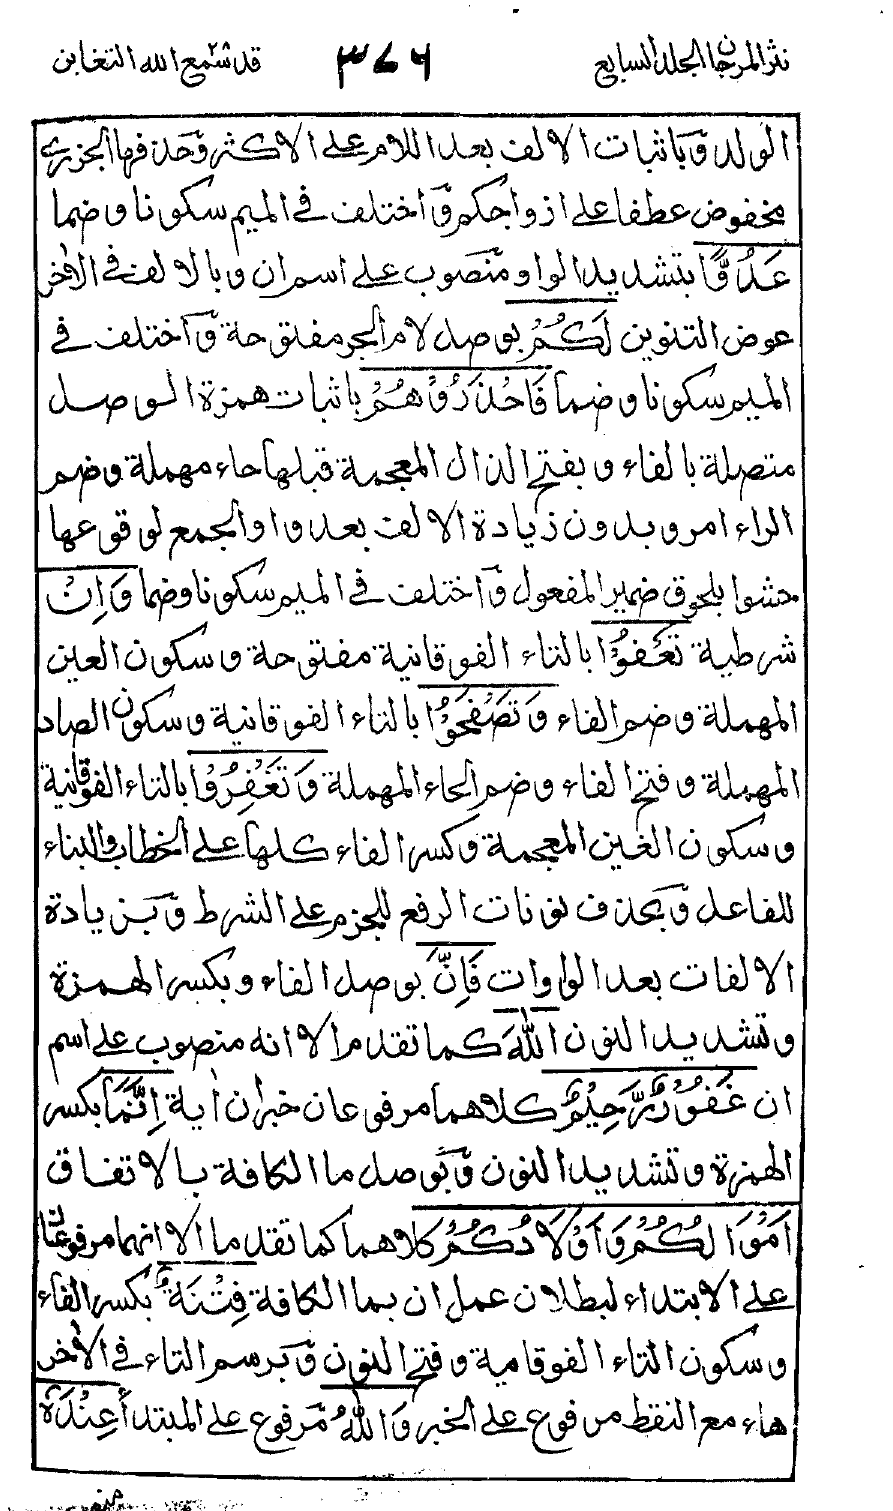 نثر المرجان المجلد السابع
٣٧٦
قد سمع الله التغابن
الولد وَبا ثبات الالف بعد اللام على الاكثر وَحذفها الجزري
مخفوض عطفا على ازواجكم وَاختلف في الميم سكونا وضما
عَدُوًّا بتشديد الواو منصوب على اسم ان وبالالف في الاخر
عوض التنوين لَكُمْ بوصل لام الجر مفتوحة وَاختلف في
الميم سكونا وضما فَاحْذَرُوْهُمْ باثبات همزة الوصل
متصلة بالفاء و بفتح الذال المعجمة قبلها حاء مهملة وضم
الراء امر وبدون زيادة الالف بعد واو الجمع لوقوعها
حشوا بلحوق ضمير المفعول وَاختلف في الميم سكونا وضما وَاِنْ
شرطية تَعْفُوْا بالتاء الفوقانية مفتوحة وسكون العين
المهملة وضم الفاء وَتَصْفَحُوْا بالتاء الفوقانية وسكون الصاد
المهملة وفتح الفاء وضم الحاء المهملة وَتَغْفِرُوْا بالتاء الفوقانية
وسكون الغين المعجمة وكسر الفاء كلها على الخطاب والبناء
للفاعل وَبحذف نونات الرفع للجزم على الشرط وَبزيادة
الالفات بعد الواوات فَاِنَّ بوصل الفاء وبكسر الهمزة
وتشديد النون اللهَ كما تقدم الا انه منصوب على اسم
ان غَفُوْرٌ رَّحِيْمٌ كلاهما مرفوعان خبران اية اِنَّمَا بكسر
الهمزة وتشديد النون وَبوصل ما الكافة بالاتفاق
اَمْوَالُكُمْ وَاَوْلَادُكُمْ كلاهما كما تقدما الا انهما مرفوعان
على الابتداء لبطلان عمل ان بما الكافة فِتْنَةٌ بكسر الفاء
وسكون التاء الفوقانية وفتح النون وَبرسم التاء في الاخر
هاء مع النقط مرفوع على الخبر وَاللهُ مرفوع على المبتدأ عِنْدَهٗ